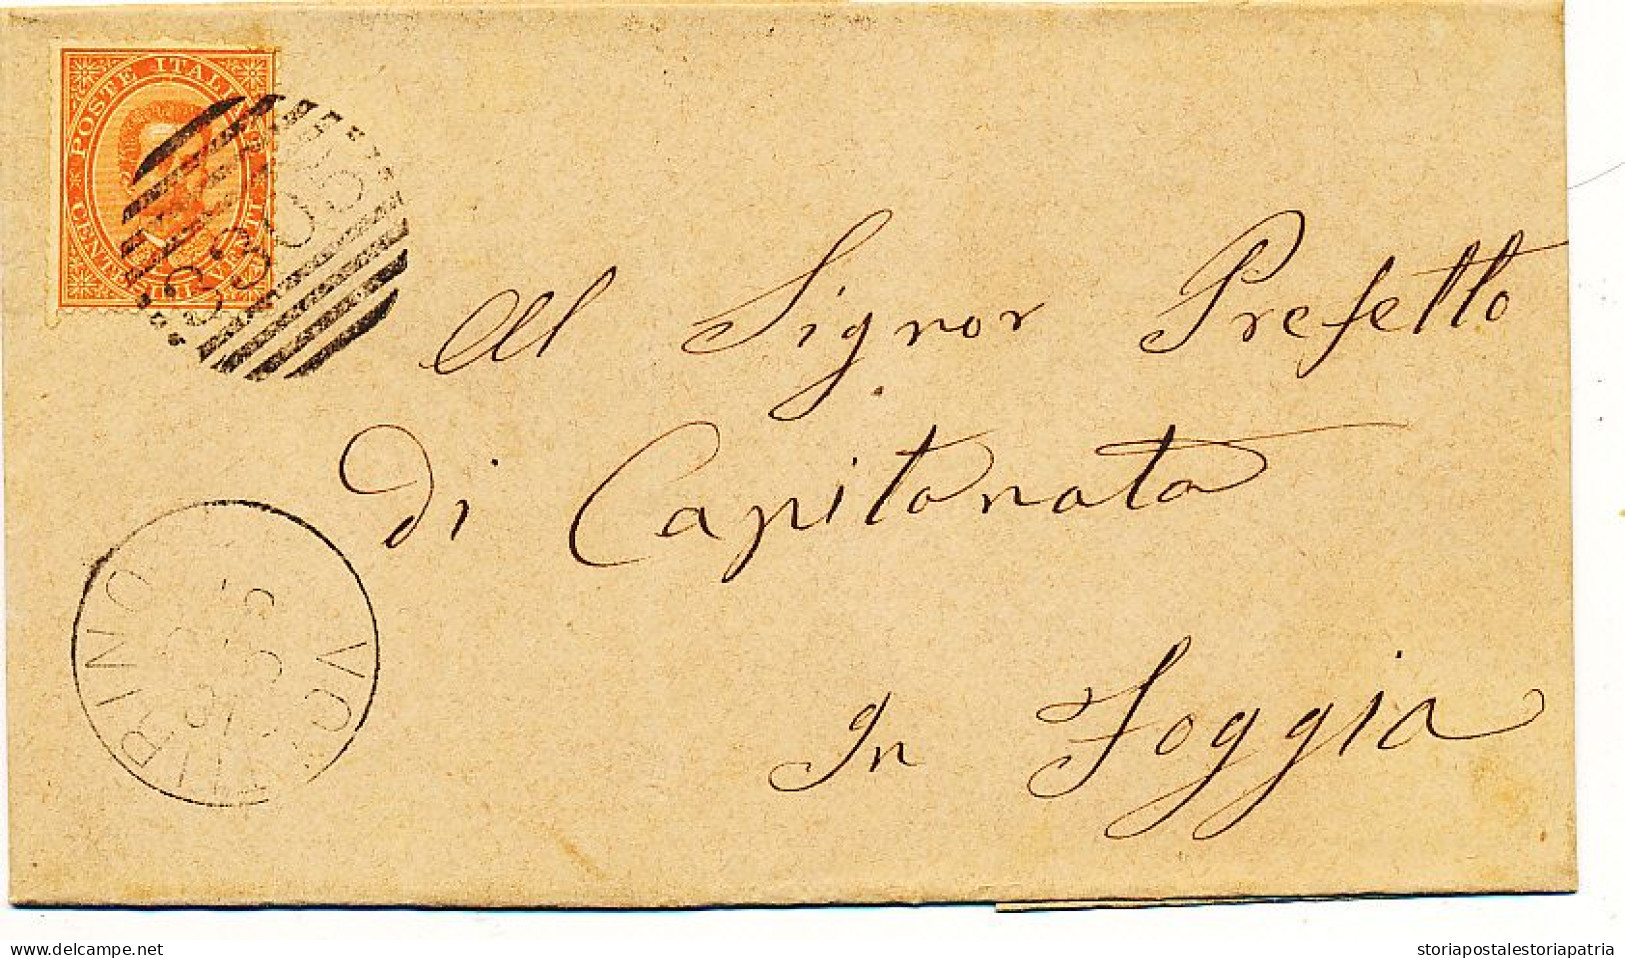 POSTE ITALIANE
CENTESIMI VENTI
3305
Al Signor Prefetto
di Capitanata
In Foggia
VOLTURINO
storiapostalestoriapatria